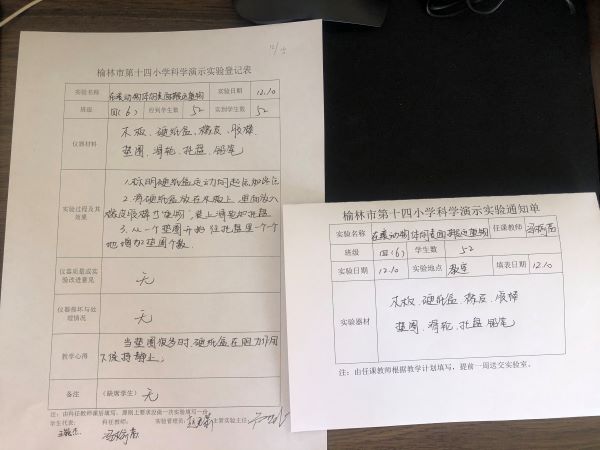 榆林市第十四小学科学演示实验登记表
实验名称 实验日期 12.10
班级 四(6) 应到学生数 52 实到学生数 52
仪器材料
木板、硬纸盒、橡皮、胶棒
垫圈、滑轮、托盘、铅笔
实验过程及其效果
1.标明硬纸盒运动的起点和终点
2.将硬纸盒放在木板上,里面放入
橡皮胶棒当货物,装上滑轮和托盘
3.从一个垫圈开始往托盘里一个个
地增加垫圈个数.
仪器质量或实验改进意见 无
仪器损坏与处理情况 无
教学心得
当垫圈很少时,硬纸盒在阻力作用
下保持静止。
备注 (缺席学生) 无
注:由科任教师课后填写,原则上要求没做一次实验填写一份
学生代表: 科任教师: 实验管理员: 主管实验主任:
榆林市第十四小学科学演示实验通知单
实验名称 任课教师
班级 四(6) 学生数 52
实验日期 12.10 实验地点 教室 填表日期 12.10
实验器材
木板、硬纸盒、橡皮、胶棒
垫圈、滑轮、托盘、铅笔
注:由任课教师根据教学计划填写,提前一周送交实验室。